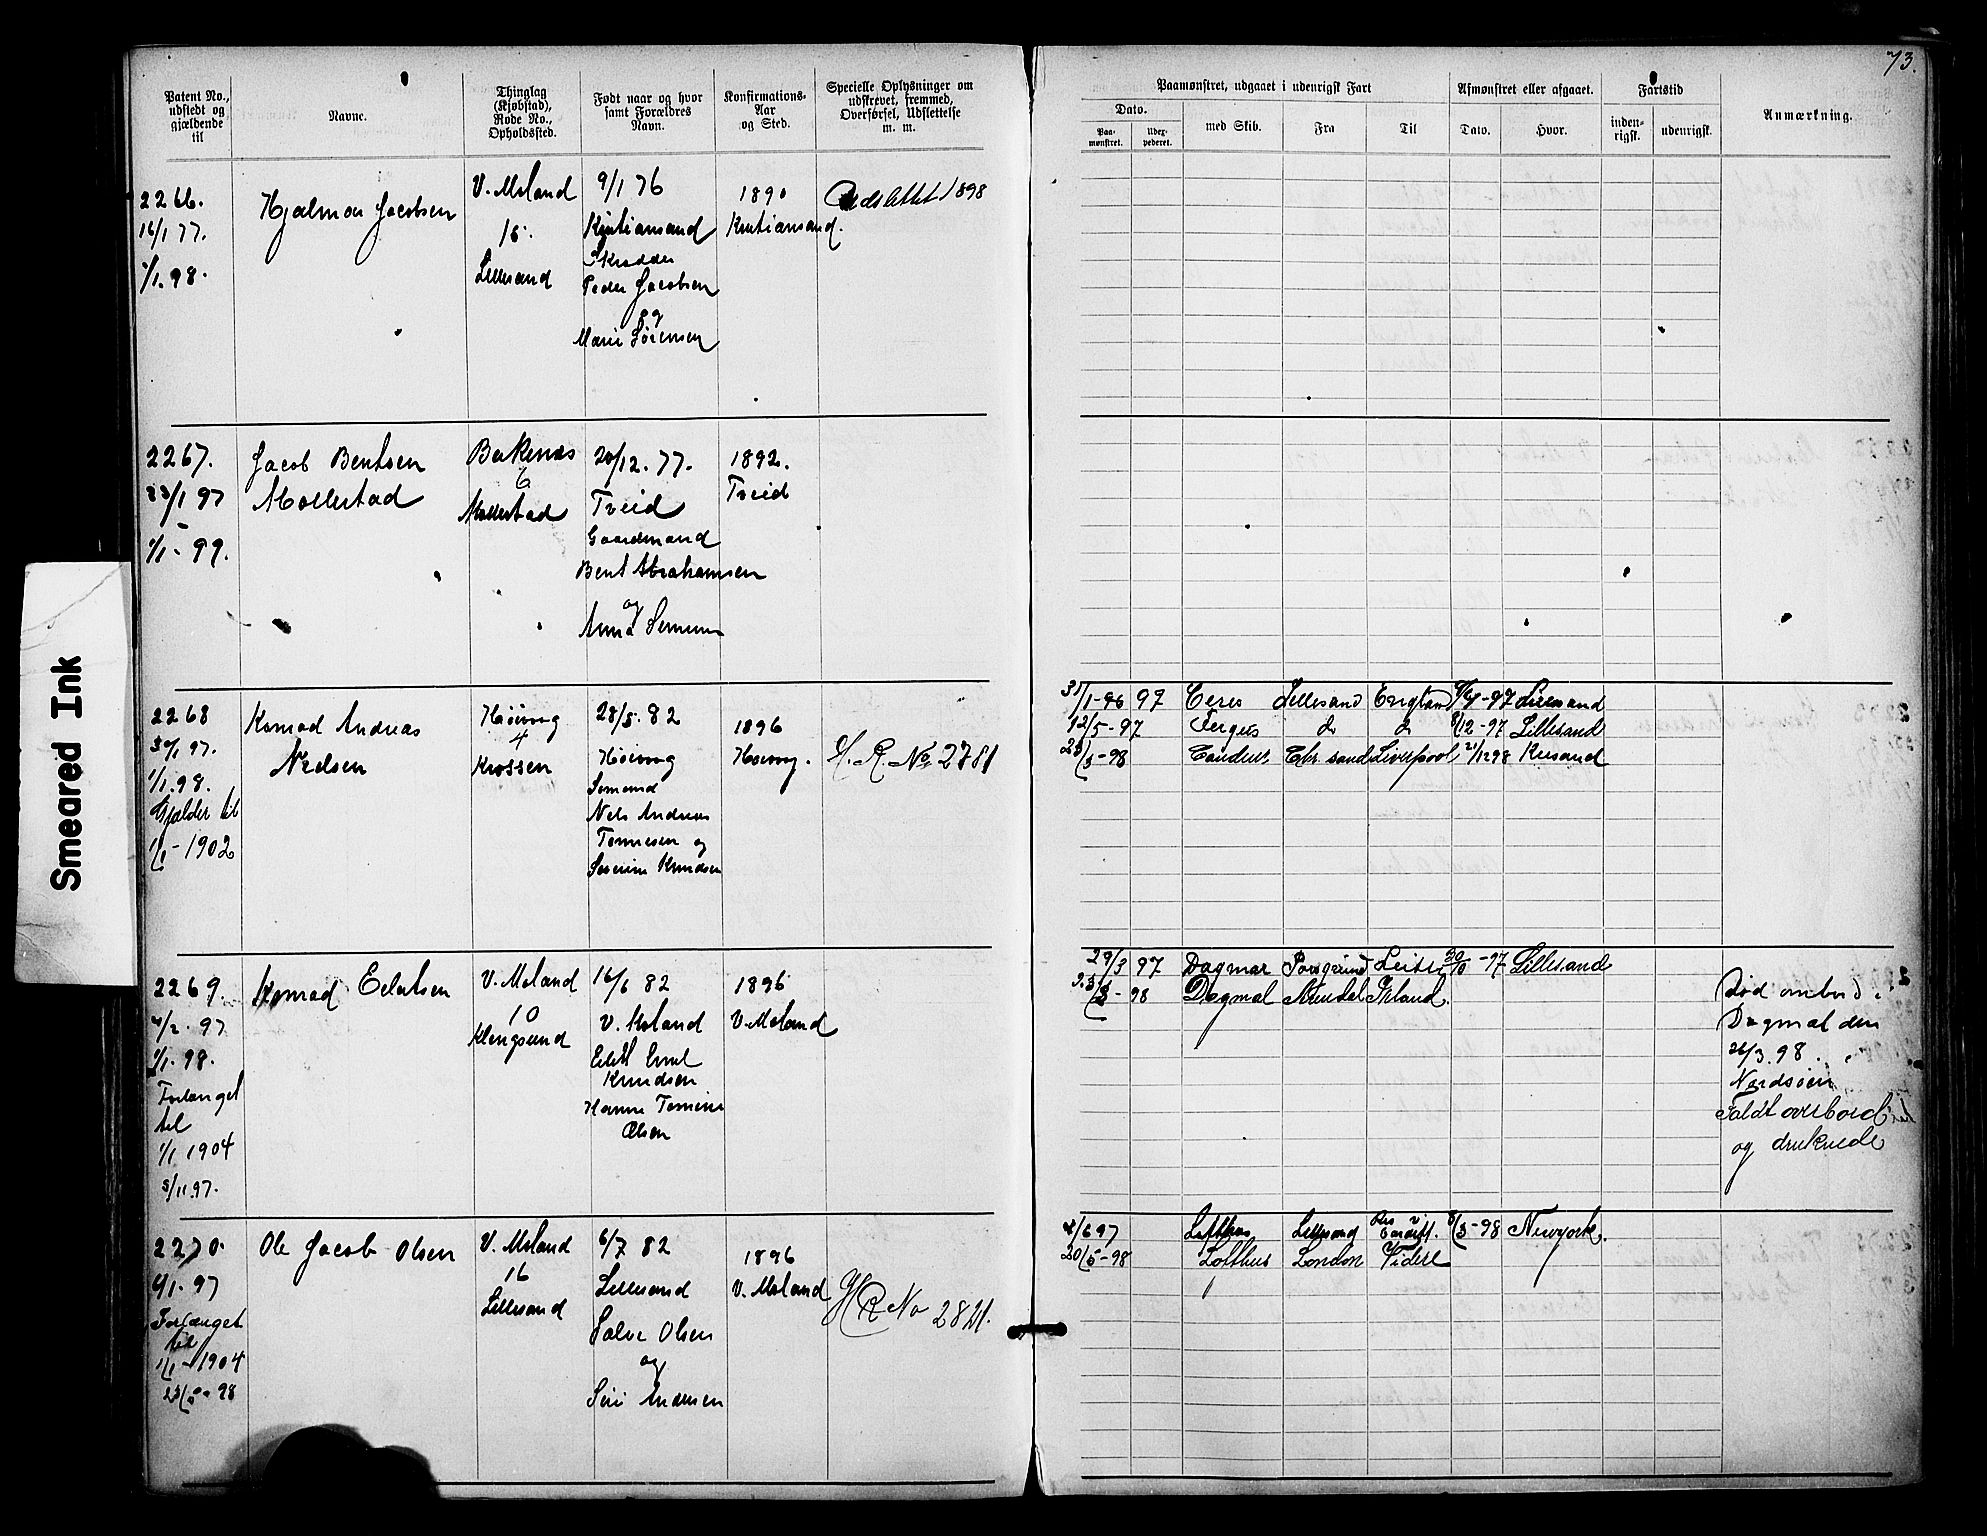 73.
Patent No., udstedt og gjældende til
Navne.
Thinglag (Kjøbstad), Rode No., Opholdssted.
Født naar og hvor samt Forældres Navn.
Konfirmations-Aar og Sted.
Specielle Oplysninger om udskrevet, fremmed, Overførsel, Udslettelse m. m.
Paamønstret, udgaaet i udenrigsk Fart
Dato.
Paa-mønstret.
Udex-pederet.
med Skib.
Fra
Til
Afmønstret eller afgaaet.
Dato.
Hvor.
Fartstid
inden-rigsk.
udenrigsk.
Anmærkning.
2266.
16/1 77.
1/1.98.
Hjalmar Jacobsen
V. Moland
15.
Lillesand
9/1 76
Kristiansand
Skrædder
Peder Jacobsen
og
Marie Sørensen
1890
Kristiansand.
Udslettet 1898
2267.
23/1 97
1/1-99.
Jacob Bentsen
Mollestad
Birkenæs
6
Mollestad
20/12.77.
Treid
Gaardmand
Bent Abrahamsen
og
Anna
1892.
Treid
2268
30/1 97.
1/1.98.
Gjælder til
1/1-1902
Konrad Andreas
Nielsen
Høivåg
4
Krossen
28/5.82
Høivåg
Sømand
Nils Andreas
Tønnesen og
Severine Knudsen
1896
Høivåg.
H. R. No 2781
31/1-96 97 Ceres Lillesand England -97 Lillesand
12/5-97 Fergus do do 8/12-97 Lillesand
23/3-98 Chr.sand Liverpool 21/12 98 Krsand
2269.
4/2.97
1/1.98.
Forlænget
til
1/1 1904
5/11 97.
Konrad Edvardsen
V. Moland
10
Klingsund
16/6 82
V. Moland
Knudsen
Hanne Tomine
Olsen
1896
V. Moland
29/3 97 Dagmar Porsgrund Leith 30/10-97 Lillesand
-98 Dagmar Arendal Irland.
Død ombord i
Dagmar den
26/3.98.
Nordsøen
Faldt overbord
og druknede
2270.
4/1.97
Forlænget
til
1/1-1904
23/5-98
Ole Jacob Olsen
V. Moland
16
Lillesand
6/7 82
Lillesand
Salve Olsen
og
Siri Andersen
1896
V. Moland
H R No 2821.
4/6 97 Lofthus Lillesand Cardiff. 8/3-98 Newyork.
20/5-98 Lofthus London
Smeared Ink